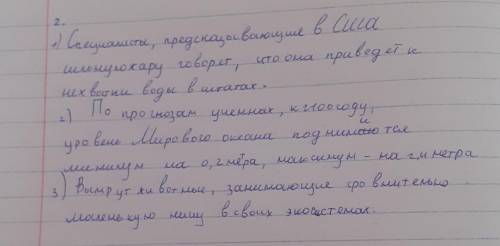 2.
1) Специалисты, предсказывающие в Сша
сильную жару говорят, что она приведет к
нехватки воды в штатах.
2) По прогнозам ученных, к 2100 году,
уровень Мирового океана поднимится
минимум на 0,2 метра, максимум - на 2 метра
3) Вымрут животные, занимающие сравнительно
маленькую нишу в своих экосистемах.